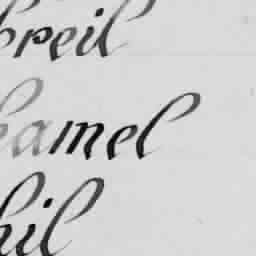 breil
hamel
hil